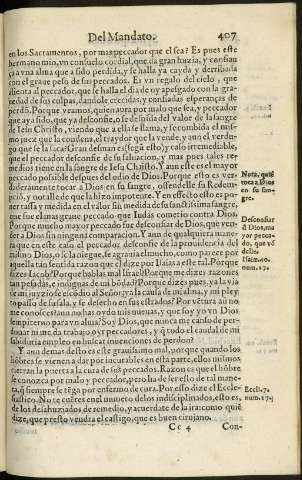 Del Mandato. 407
en los Sacramentos, por mas peccador que el sea? Es pues este
hermano mio, vn consuelo cordial, que da gran huzia, y confian
ça a vna alma que a sido perdida, y se halla ya cayda y derribada
con el graue peso de sus peccados. Es vn regalo del cielo, que
alienta al peccador, que se halla el dia de oy apesgado con la gra-
uedad de sus culpas, dandole crecidas, y confiadas esperanças de
perdō. Porque veamos, quien aura por malo que sea, y peccador
que aya sido, que ya desconfie, o se despida del valor de la sangre
de Iesu Christo, viendo que a ella se llama, y se combida el mis-
mo juez que la condena, el traydor que la vende, y aun el verdu-
go que se la saca? Gran desman es (segū esto) y caso irremediable,
que el peccador desconfie de su saluacion, y mas pues tales re-
medios tiene en la sangre de Iesu Christo. Y aun este es el mayor
peccado posible despues del odio de Dios. Porque esto es ver-
daderamente tocar a Dios en su sangre, offendelle su Redemp
ciō, y notalle de que la hizo impotente. Y en effecto esto es po-
ner tassa y medida en el valor sin medida de su sanctissima sangre,
que fue el mas graue peccado que Iudas cometio contra Dios.
Porque mucho mayor peccado fue desconfiar de Dios, que ven-
der a Dios sin ninguna comparacion. Y aun de qualquiera mane-
ra que en este caso el peccador desconfie de la prouidencia del
mismo Dios, o se la niegue, se agrauia el mucho, como parece por
aquella tan sentida razon que el dize por Isaias a este tal. Porque
dizes Iacob? Porque hablas mal Israel? Porque me dizes razones
tan pesadas, e indignas de mi bōdad? Porque dizes pues, ya la via
de mi juyzio se escōdio al Señor: ya la causa de mi alma, y mi pley
to passo de su sala, y se desecho en sus estrados? Por vētura aū no
me conosces? aun no has oydo mis nueuas, y que soy yo vn Dios
sempiterno para vn alma? Soy Dios, que nunca me canso de per-
donar ni me da trabajo oyr peccadores, y q̄ todo el caudal de mi
sabiduria empleo en buscar inuenciones de perdon?
Y aun demas desto es este grauissimo mal, porque quando los
hōbres se vienen a dar por incurables en esta parte, ellos mismos
cierran la puerta a la cura de sus peccados. Razon es que el hōbre
se conozca por malo y peccador, pero ha de ser esto de tal mane-
ra, q̄ siempre se tēga por enfermo de cura. Por esto dize el Eccle-
siastico. No te cuētes en el numero delos indisciplinados, esto es,
de los desahuziados de remedio, y acuerdate de la ira: como quiē
dize, que presto vendra el castigo, que es buen cirujano.
Cc 4 Con-
Nota, quiē
toca a Dios
en su san-
gre.
Desconfiar
d Dios, ma
yor pecca-
do, que vē
delle.
Isai. 40.
num. 27.
Eccli. 7.
num. 17.